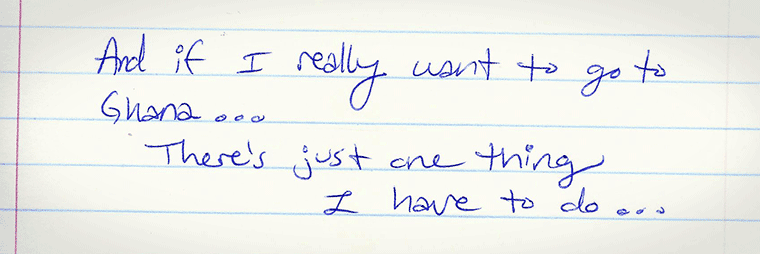 And if I really want to go to
Ghana...
There's just one thing
I have to do...